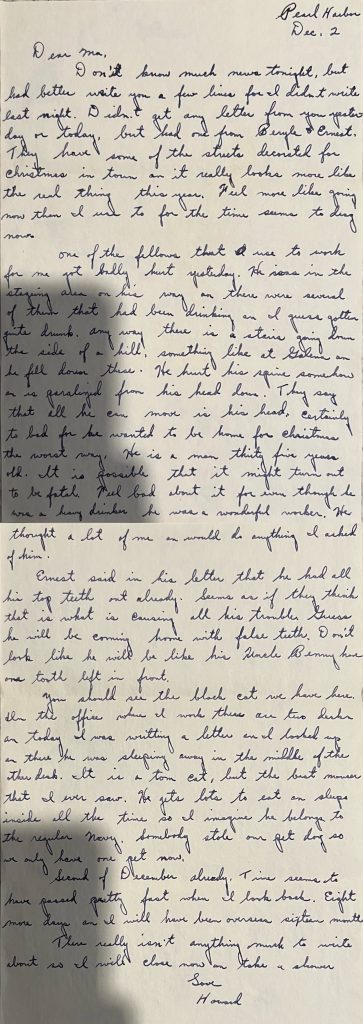 Pearl Harbor
Dec. 2
Dear Ma,
Don't know much news tonight, but
had better write you a few lines for I didn't write
last night. Didn't get any letter from you yester
day or today, but had one from Beryle & Ernest.
They have some of the streets decorated for
Christmas in town an it really looks more like
the real thing this year. Feel more like going
now then I use to for the time seems to drag
now.
One of the fellows that I use to work
for me got badly hurt yesterday. He was in the
staging area on his way an there were several
of them that had been drinking an I guess gotten
quite drunk. Any way there is a stairs going down
the side of a hill, something like at an
he fell down these. He hurt his spine somehow
an is paralized from his head down. They say
that all he can move is his head, certainly
to bad for he wanted to be home for Christmas
the worst way. He is a man thirty five years
old. It is possible that it might turn out
to be fatal. Feel bad about it for even though he
was a heavy drinker he was a wonderful worker. He
thought a lot of me an would do anything I asked
of him.
Ernest said in his letter that he had all
his top teeth out already. Seems as if they think
that is what is causing all his trouble. Guess
he will be coming home with false teeth. Don't
look like he will be like his Uncle Benny have
one tooth left in front.
You should see the black cat we have here.
In the office where I work there are two desks
an today I was writting a letter an I looked up
an there he was sleeping away in the middle of the
other desk. It is a tom cat, but the best mouser
that I ever saw. He gets lots to eat an sleeps
inside all the time so I imagine he belongs to
the regular Navy. Somebody stole our pet dog so
we only have one pet now.
Second of December already. Time seems to
have passed pretty fast when I look back. Eight
more days an I will have been overseas sixteen months
There really isn't anything much to write
about so I will close now an take a shower
Love
Howard